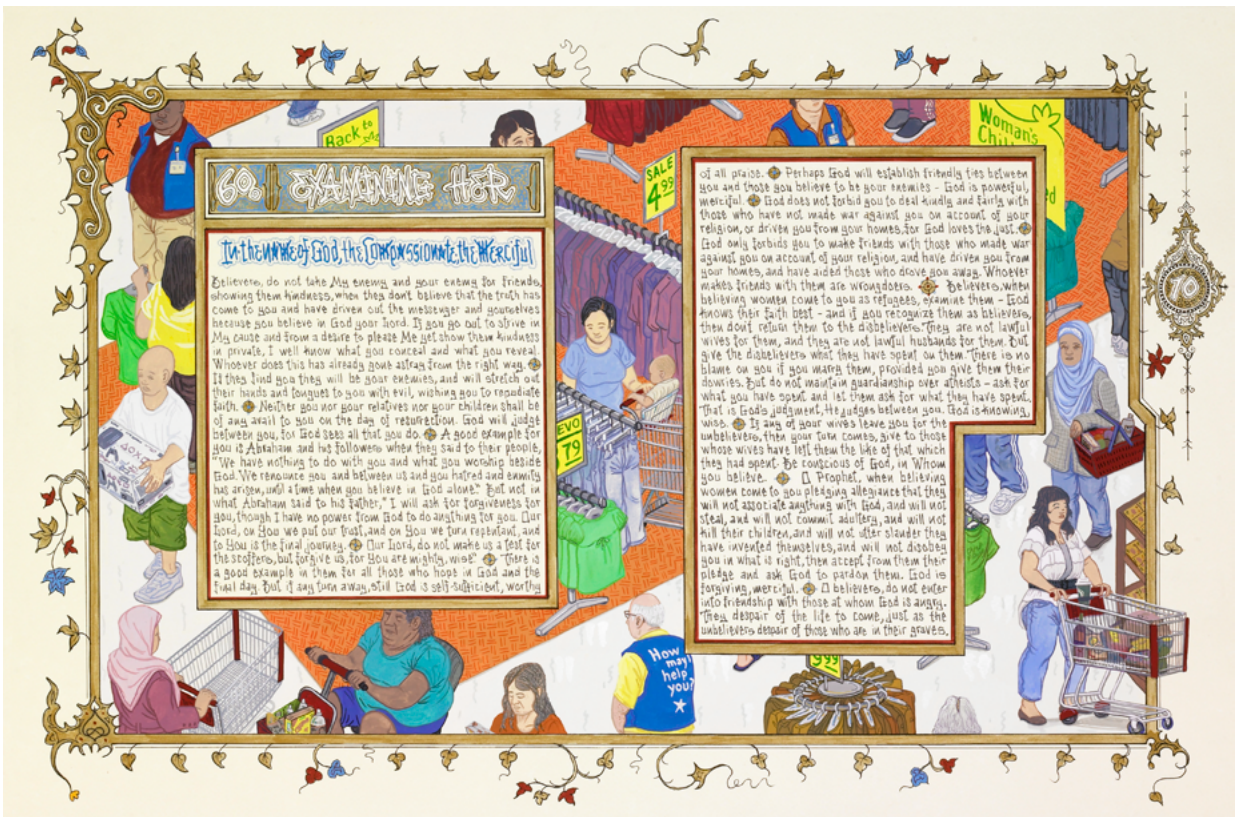 Back to
60. EXAMINING HER
In the name of God, the Compassionate, the Merciful
Believers, do not take My enemy and your enemy for friends,
showing them kindness, when they don't believe that the truth has
come to you and have driven out the messenger and yourselves
because you believe in God your Lord. If you go out to strive in
My cause and from a desire to please Me yet show them kindness
in private, I well know what you conceal and what you reveal.
Whoever does this has already gone astray from the right way.
If they find you they will be your enemies, and will stretch out
their hands and tongues to you with evil, wishing you to repudiate
faith. Neither you nor your relatives nor your children shall be
of any avail to you on the day of resurrection. God will judge
between you, for God sees all that you do. A good example for
you is Abraham and his followers when they said to their people,
"We have nothing to do with you and what you worship beside
God. We renounce you and between us and you hatred and enmity
has arisen, until a time when you believe in God alone." But not in
what Abraham said to his father, "I will ask for forgiveness for
you, though I have no power from God to do anything for you. Our
Lord, on You we put our trust, and on You we turn repentant, and
to You is the final journey. Our Lord, do not make us a test for
the scoffers, but forgive us, for You are mighty, wise." There is
a good example in them for all those who hope in God and the
final day. But if any turn away, still God is self-sufficient, worthy
of all praise. Perhaps God will establish friendly ties between
you and those you believe to be your enemies - God is powerful,
merciful. God does not forbid you to deal kindly and fairly with
those who have not made war against you on account of your
religion, or driven you from your homes, for God loves the just.
God only forbids you to make friends with those who made war
against you on account of your religion, and have driven you from
your homes, and have aided those who drove you away. Whoever
makes friends with them are wrongdoers. Believers, when
believing women come to you as refugees, examine them - God
knows their faith best - and if you recognize them as believers,
then don't return them to the disbelievers. They are not lawful
wives for them, and they are not lawful husbands for them. But
give the disbelievers what they have spent on them. There is no
blame on you if you marry them, provided you give them their
dowries. But do not maintain guardianship over atheists - ask for
what you have spent and let them ask for what they have spent.
That is God's judgment, He judges between you. God is knowing,
wise. If any of your wives leave you for the
unbelievers, then your turn comes, give to those
whose wives have left them the like of that which
they had spent. Be conscious of God, in Whom
you believe. O Prophet, when believing
women come to you pledging allegiance that they
will not associate anything with God, and will not
steal, and will not commit adultery, and will not
kill their children, and will not utter slander they
have invented themselves, and will not disobey
you in what is right, then accept from them their
pledge and ask God to pardon them. God is
forgiving, merciful. O believers, do not enter
into friendship with those at whom God is angry.
They despair of the life to come, just as the
unbelievers despair of those who are in their graves.
SALE
4.99
Woman's
EVO
79
How
may I
help
you?
9.99
10